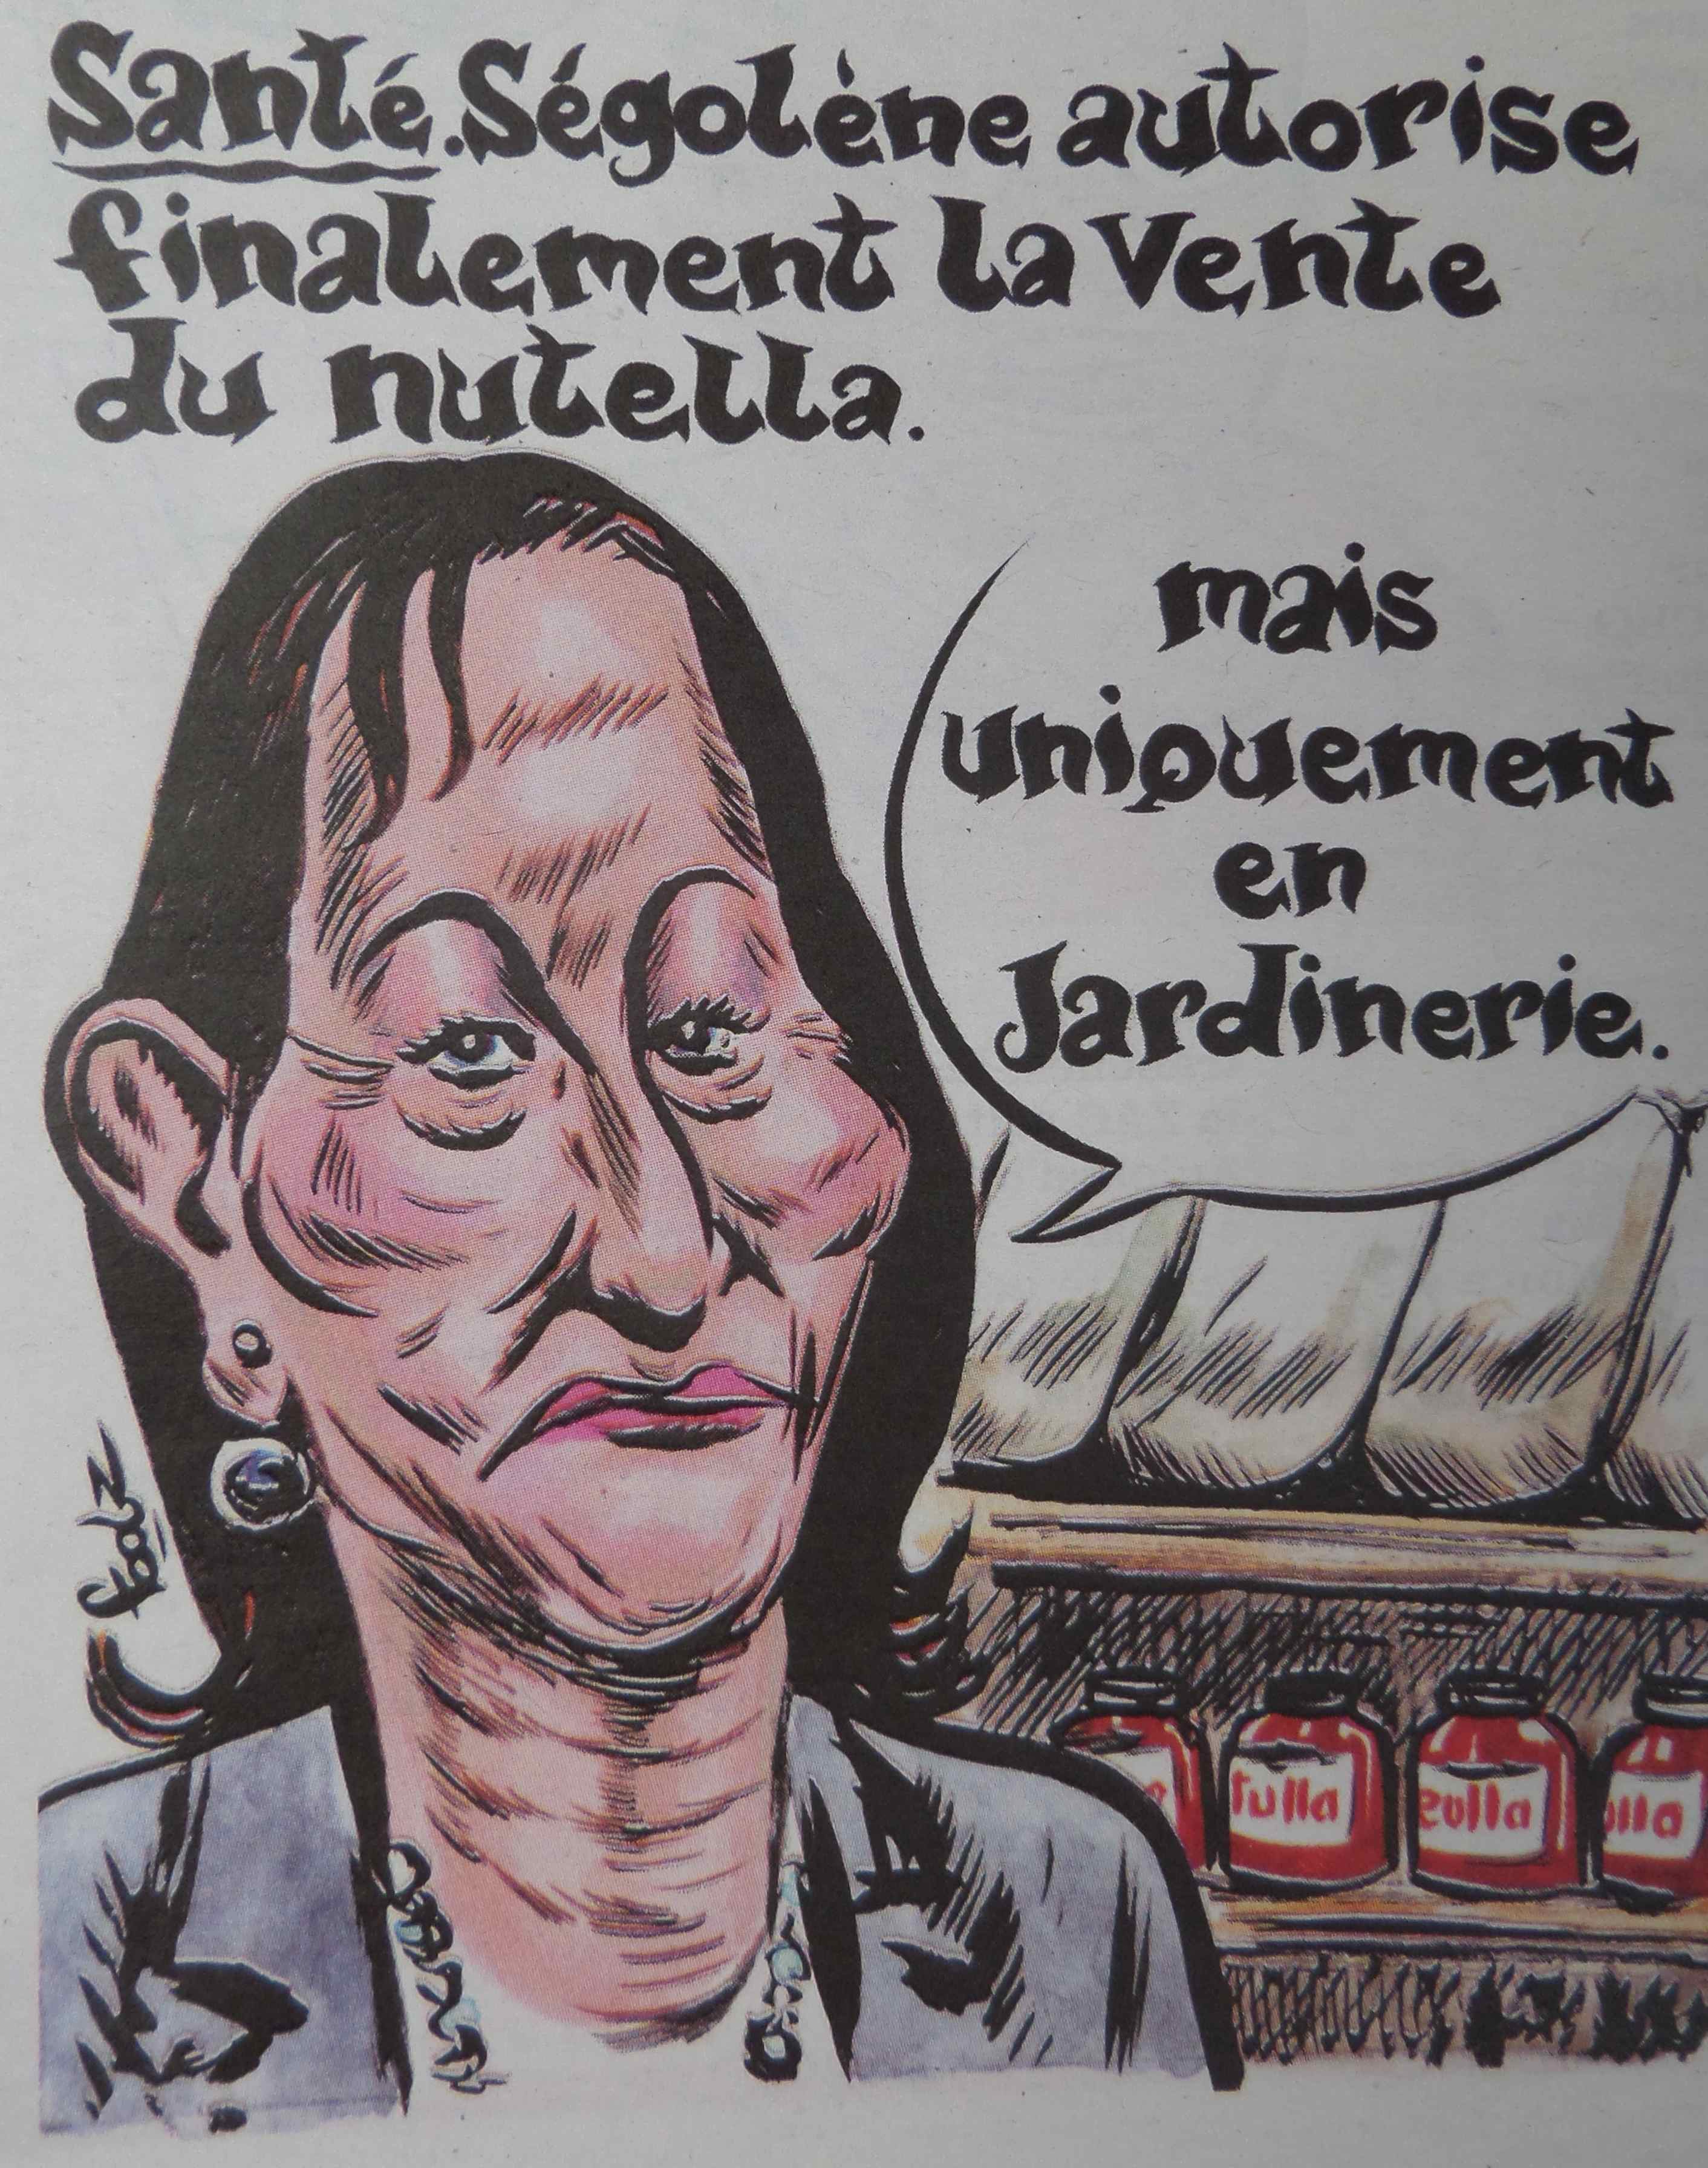 Santé. Ségolène autorise
finalement la vente
du nutella.
mais
uniquement
en
Jardinerie.
tulla
eulla
lla